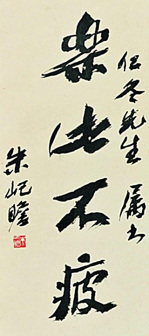 乐此不疲
伯冬先生 属书
朱屺瞻